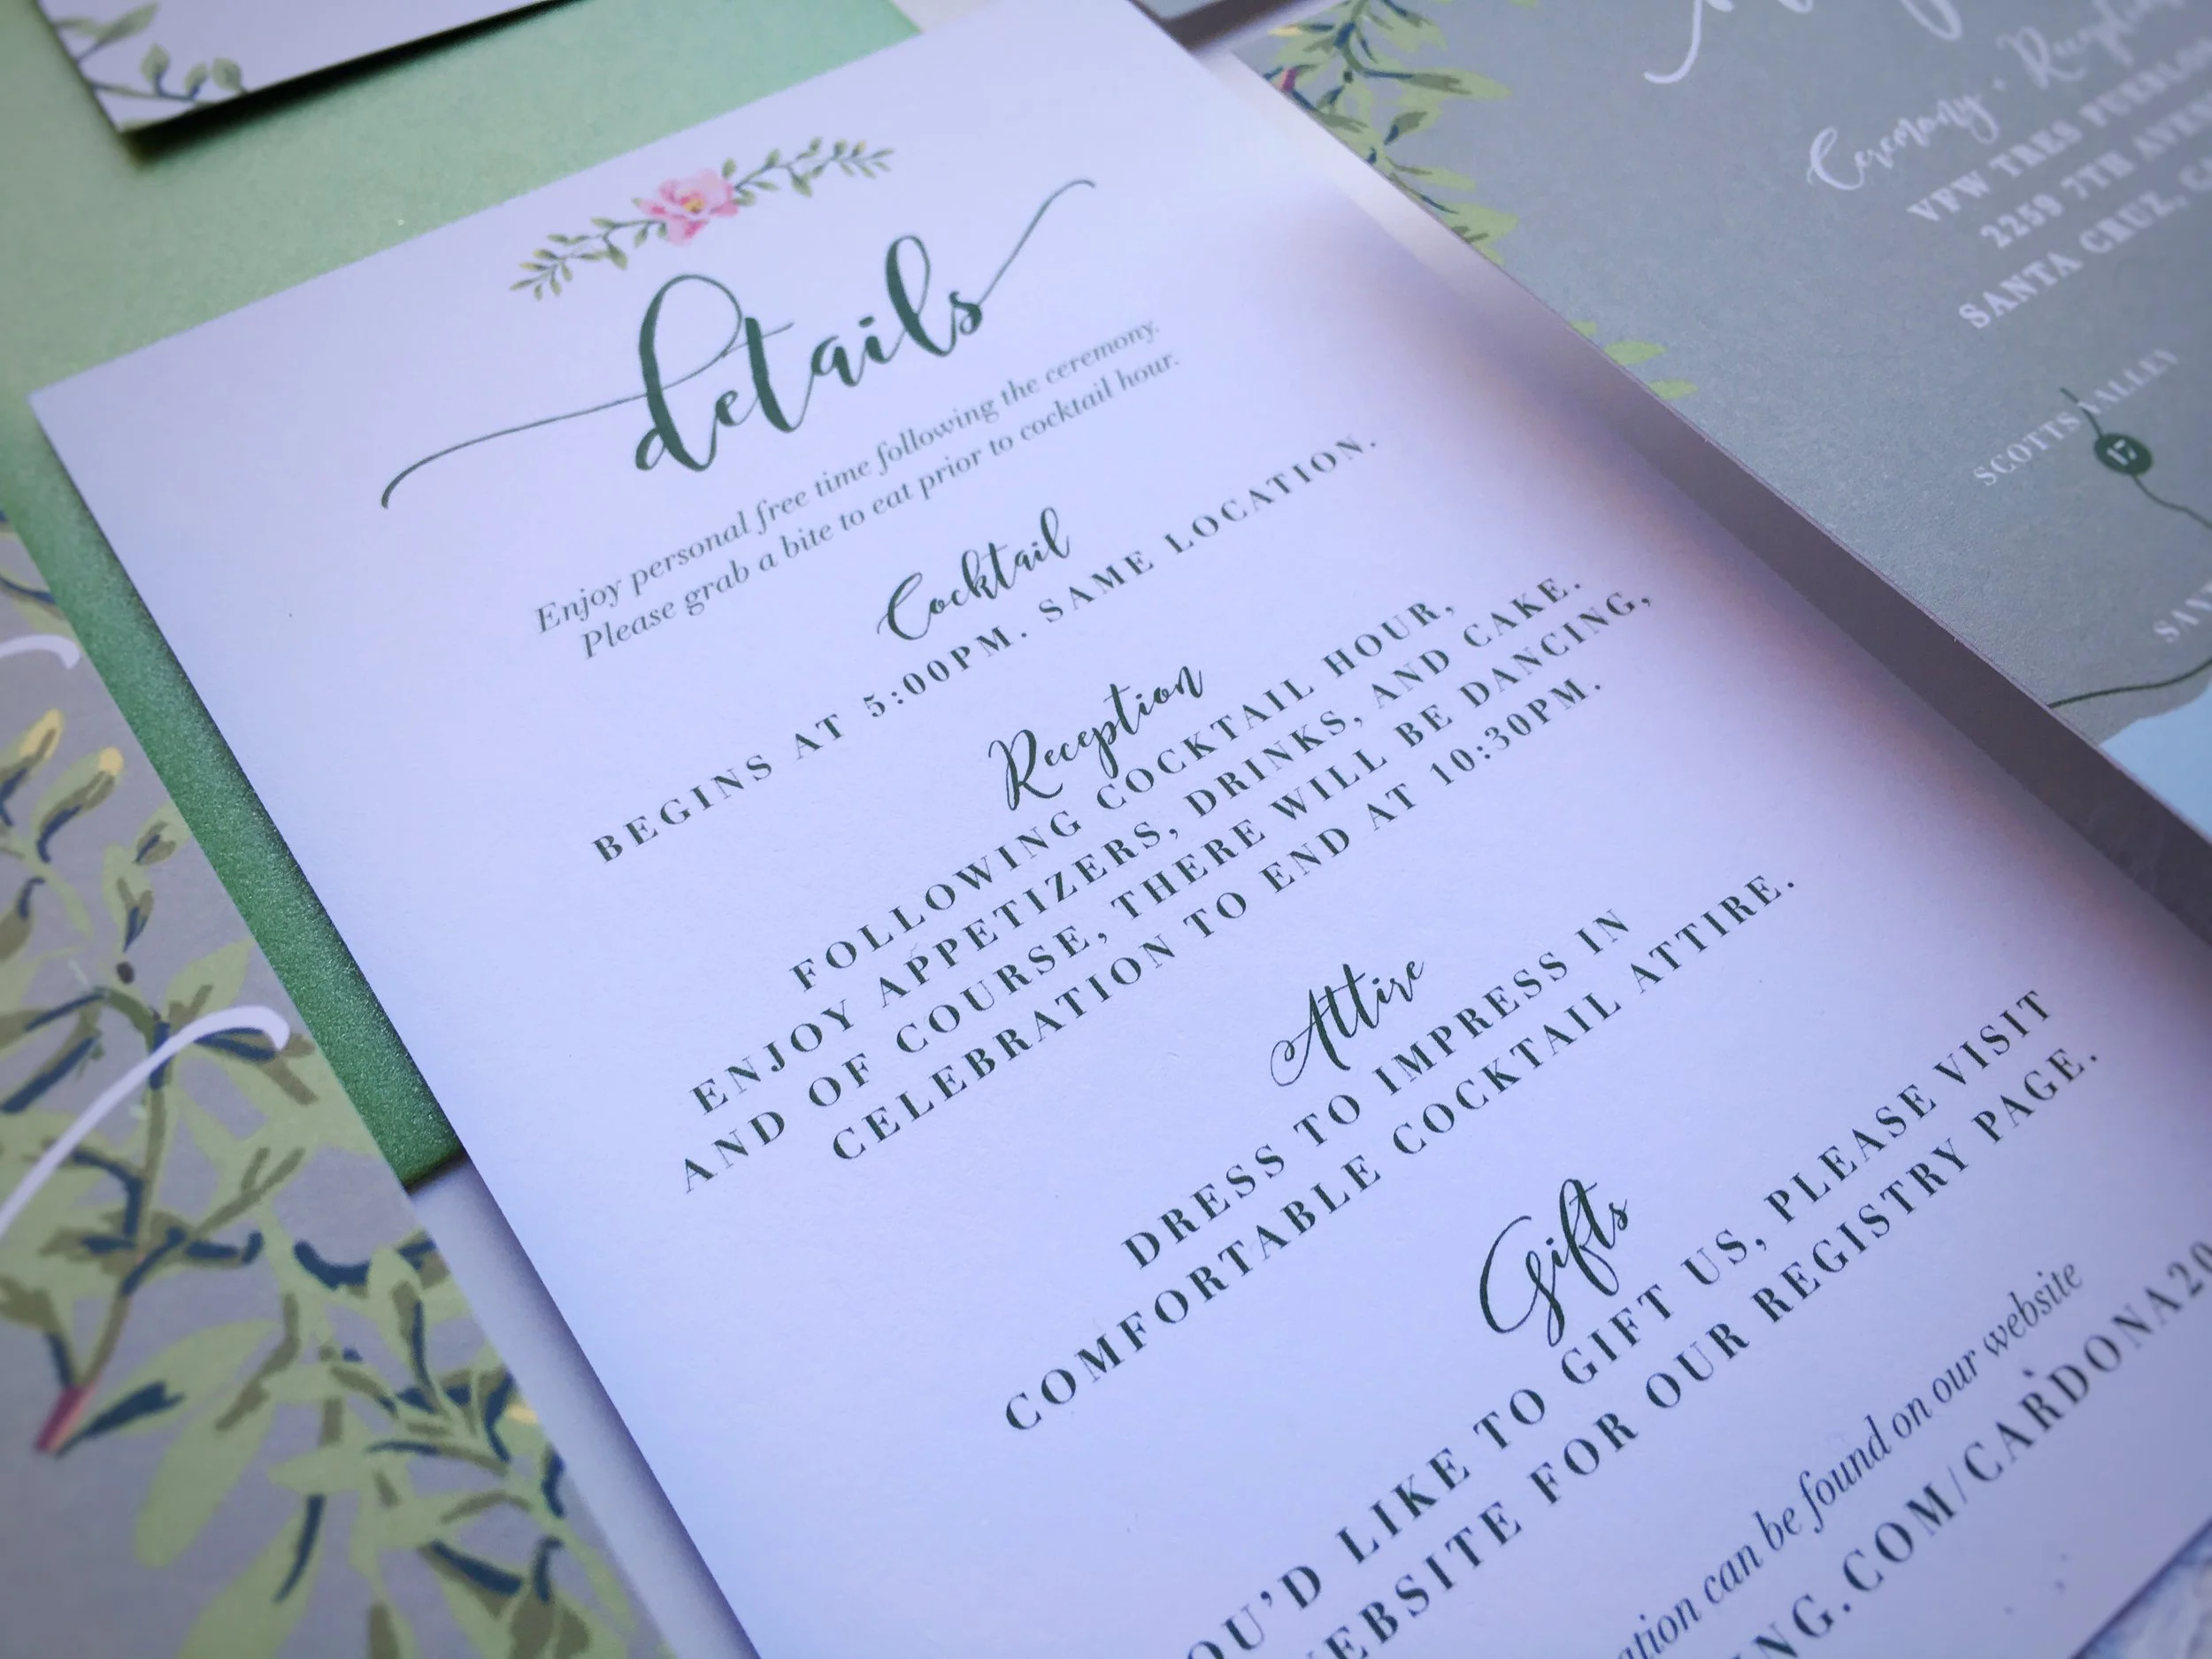 details
Enjoy personal free time following the ceremony.
Please grab a bite to eat prior to cocktail hour.
Cocktail
BEGINS AT 5:00PM. SAME LOCATION.
Reception
FOLLOWING COCKTAIL HOUR,
ENJOY APPETIZERS, DRINKS, AND CAKE.
AND OF COURSE, THERE WILL BE DANCING,
CELEBRATION TO END AT 10:30PM.
Attire
DRESS TO IMPRESS IN
COMFORTABLE COCKTAIL ATTIRE.
Gifts
LIKE TO GIFT US, PLEASE VISIT
FOR OUR REGISTRY PAGE.
can be found on our website
Ceremony
VFW TRES
2259 7TH
SANTA CRUZ,
SCOTTS VALLEY
17